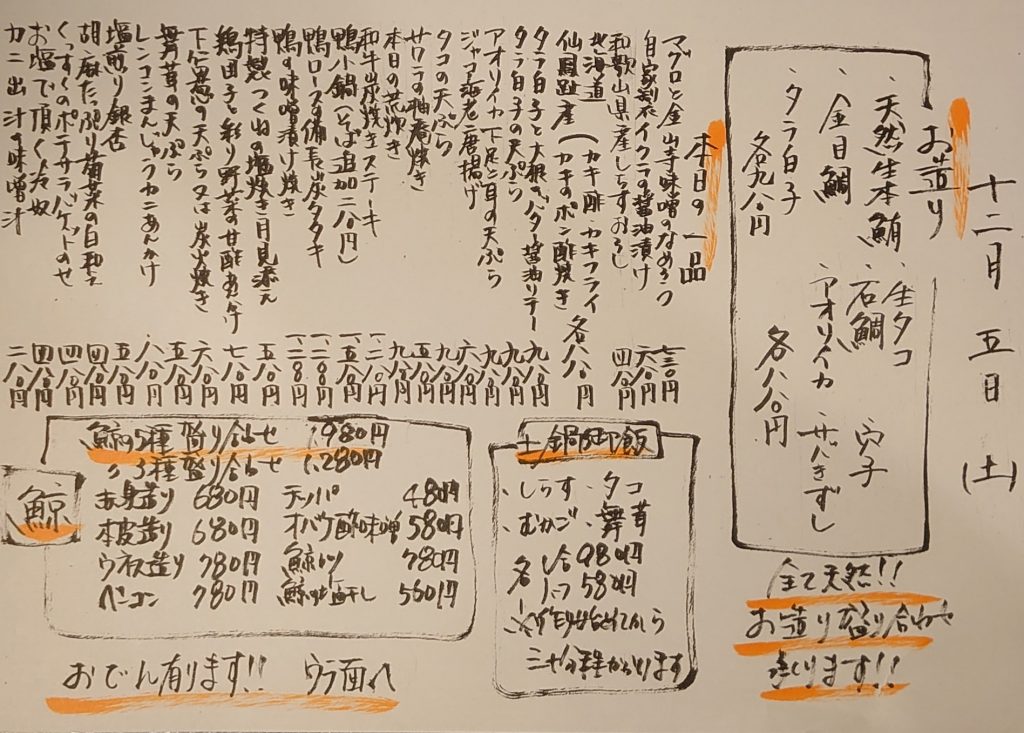 十二月 五日 (土)
お造り
・天然生本鮪 ・生タコ 穴子
・金目鯛 ・石鯛
・タラ白子 ・アオリイカ
各九八〇円 各八八〇円
全て天然!!
お造り盛り合わせ
承ります!!
本日の一品
マグロと金山寺味噌のなめろう 七三〇円
自家製イクラの醤油漬け 六八〇円
和歌山県産しらすおろし 四八〇円
北海道 (カキ酢 カキフライ
仙鳳趾産 (カキのポン酢焼き 各八八〇円
タラ白子と大根のバター醤油ソテー 九八〇円
タラ白子の天ぷら 九八〇円
アオリイカ下足と耳の天ぷら 九八〇円
ジャコ海老唐揚げ 六八〇円
タコの天ぷら 九八〇円
サワラの柚庵焼き 五八〇円
本日の荒炊き 九八〇円
和牛炭焼きステーキ
鴨小鍋(そば追加二八〇円)
鴨ロースの備長炭タタキ
鴨の味噌漬け焼き
特製つくねの塩焼き 月見添え 五八〇円
鶏団子と彩り野菜の甘酢あんかけ 七八〇円
下仁田葱の天ぷら又は炭火焼き 六八〇円
舞茸の天ぷら 五八〇円
レンコンまんじゅうカニあんかけ
塩煎り銀杏 五八〇円
胡麻たっぷり菊菜の白和え 四八〇円
くっすくのポテサラバケットのせ 四八〇円
お塩で頂く冷奴 四八〇円
カニ出汁の味噌汁 二八〇円
土鍋御飯
・しらす ・タコ
・むかご ・舞茸
各 一合 980円
1/2 580円
鯨
鯨の5種盛り合わせ 1,980円
〃 3種盛り合わせ 1,280円
赤身造り 680円 テッパ 480円
本皮造り 680円 オバケ酢味噌 580円
ウネス造り 780円 鯨カツ 780円
ベーコン 780円 鯨の塩干し 560円
おでん有ります!! ウラ面へ